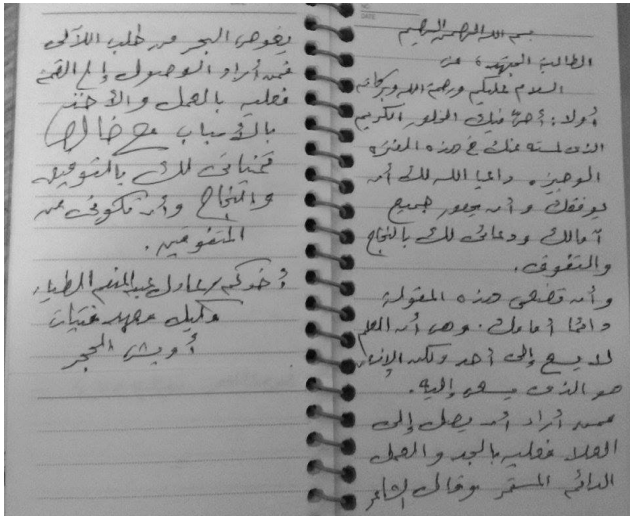 بسم الله الرحمن الرحيم
الطالبة المجتهدة
السلام عليكم ورحمة الله وبركاته
أولا: أحيي فيك الخلق الكريم
الذي لمسته منك في هذه الفترة
الوجيزة. داعيا الله لك أن
يوفقك وأن يحقق جميع
آمالك ودعائى لك بالنجاح
والتفوق.
وأن تضعى هذه المقولة
دائما أمامك. وهى أن العلم
لا يسعى إلى أحد ولكن الإنسان
هو الذى يسعى إليه.
فمن أراد أن يصل إلى
العلا فعليه بالجد والعمل
الدائم المستمر وقال الشاعر
يغوص البحر من طلب اللآلى
فمن أراد الوصول إلى القمة
فعليه بالعمل والأخذ
بالأسباب مع خالص
تمنياتى لك بالتوفيق
والنجاح وأن تكونى من
المتفوقين.
أخوكم/عادل عبد المنعم الطيار
وكيل معهد فتيات
أويش الحجر